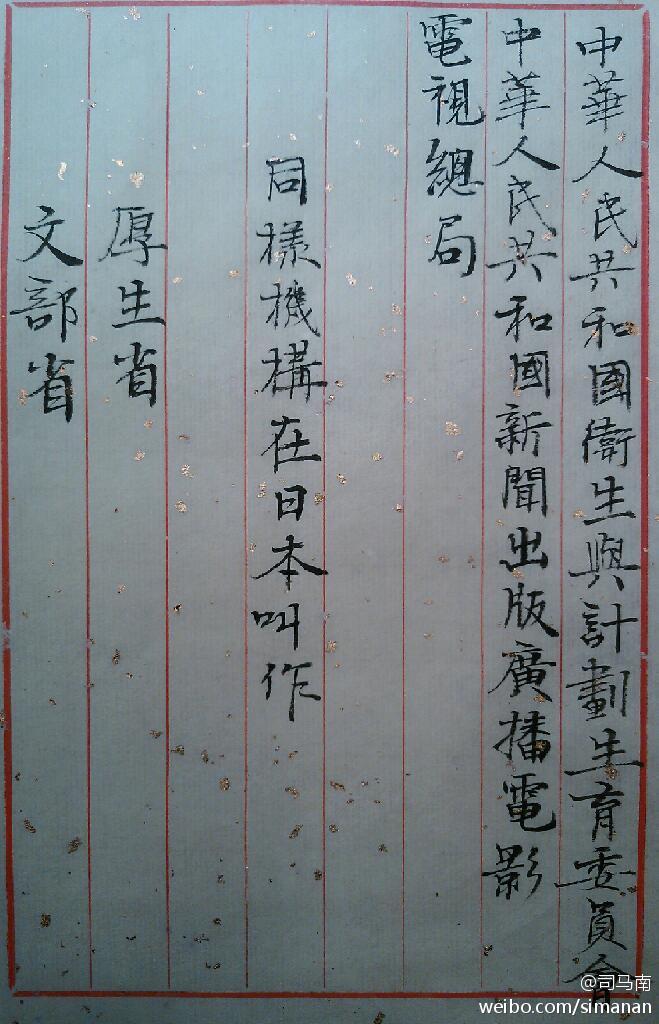 中華人民共和國衛生與計劃生育委員會
中華人民共和國新聞出版廣播電影
電視總局
同樣機構在日本叫作
厚生省
文部省
@司马南
weibo.com/simanan